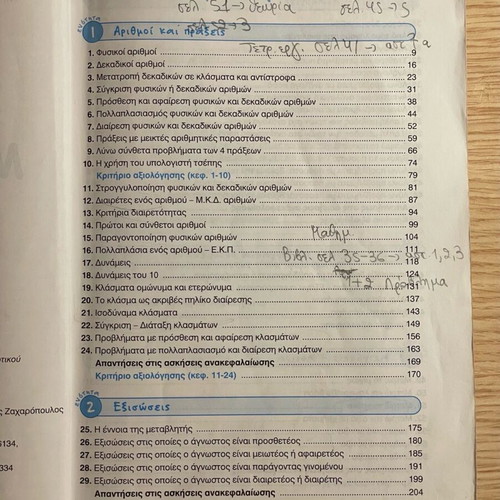 σελ 51 → θεωρία
σελ 45 → 5
ενότητα
1 Αριθμοί και πράξεις
Τετρ. εργ. σελ 41 → ασκ
1. Φυσικοί αριθμοί 9
2. Δεκαδικοί αριθμοί 16
3. Μετατροπή δεκαδικών σε κλάσματα και αντίστροφα 23
4. Σύγκριση φυσικών ή δεκαδικών αριθμών 31
5. Πρόσθεση και αφαίρεση φυσικών και δεκαδικών αριθμών 38
6. Πολλαπλασιασμός φυσικών και δεκαδικών αριθμών 44
7. Διαίρεση φυσικών και δεκαδικών αριθμών 52
8. Πράξεις με μεικτές αριθμητικές παραστάσεις 59
9. Λύνω σύνθετα προβλήματα των 4 πράξεων 66
10. Η χρήση του υπολογιστή τσέπης 74
Κριτήριο αξιολόγησης (κεφ. 1-10) 79
11. Στρογγυλοποίηση φυσικών και δεκαδικών αριθμών 81
12. Διαιρέτες ενός αριθμού – Μ.Κ.Δ. αριθμών 87
13. Κριτήρια διαιρετότητας 94
14. Πρώτοι και σύνθετοι αριθμοί 99
Μαθημ.
15. Παραγοντοποίηση φυσικών αριθμών 104
16. Πολλαπλάσια ενός αριθμού – Ε.Κ.Π. 111
Βιβλ. σελ 35-36 → ασκ 1,2,3
17. Δυνάμεις 118
18. Δυνάμεις του 10 124
1+2 Πρόβλημα
19. Κλάσματα ομώνυμα και ετερώνυμα 131
20. Το κλάσμα ως ακριβές πηλίκο διαίρεσης 137
21. Ισοδύναμα κλάσματα 143
22. Σύγκριση – Διάταξη κλασμάτων 149
23. Προβλήματα με πρόσθεση και αφαίρεση κλασμάτων 156
24. Προβλήματα με πολλαπλασιασμό και διαίρεση κλασμάτων 163
Απαντήσεις στις ασκήσεις ανακεφαλαίωσης 169
Κριτήριο αξιολόγησης (κεφ. 11-24) 170
ενότητα
2 Εξισώσεις
25. Η έννοια της μεταβλητής 175
26. Εξισώσεις στις οποίες ο άγνωστος είναι προσθετέος 180
27. Εξισώσεις στις οποίες ο άγνωστος είναι μειωτέος ή αφαιρετέος 185
28. Εξισώσεις στις οποίες ο άγνωστος είναι παράγοντας γινομένου 191
29. Εξισώσεις στις οποίες ο άγνωστος είναι διαιρετέος ή διαιρέτης 199
Απαντήσεις στις ασκήσεις ανακεφαλαίωσης 204
τικού
Ζαχαρόπουλος
6134,
334